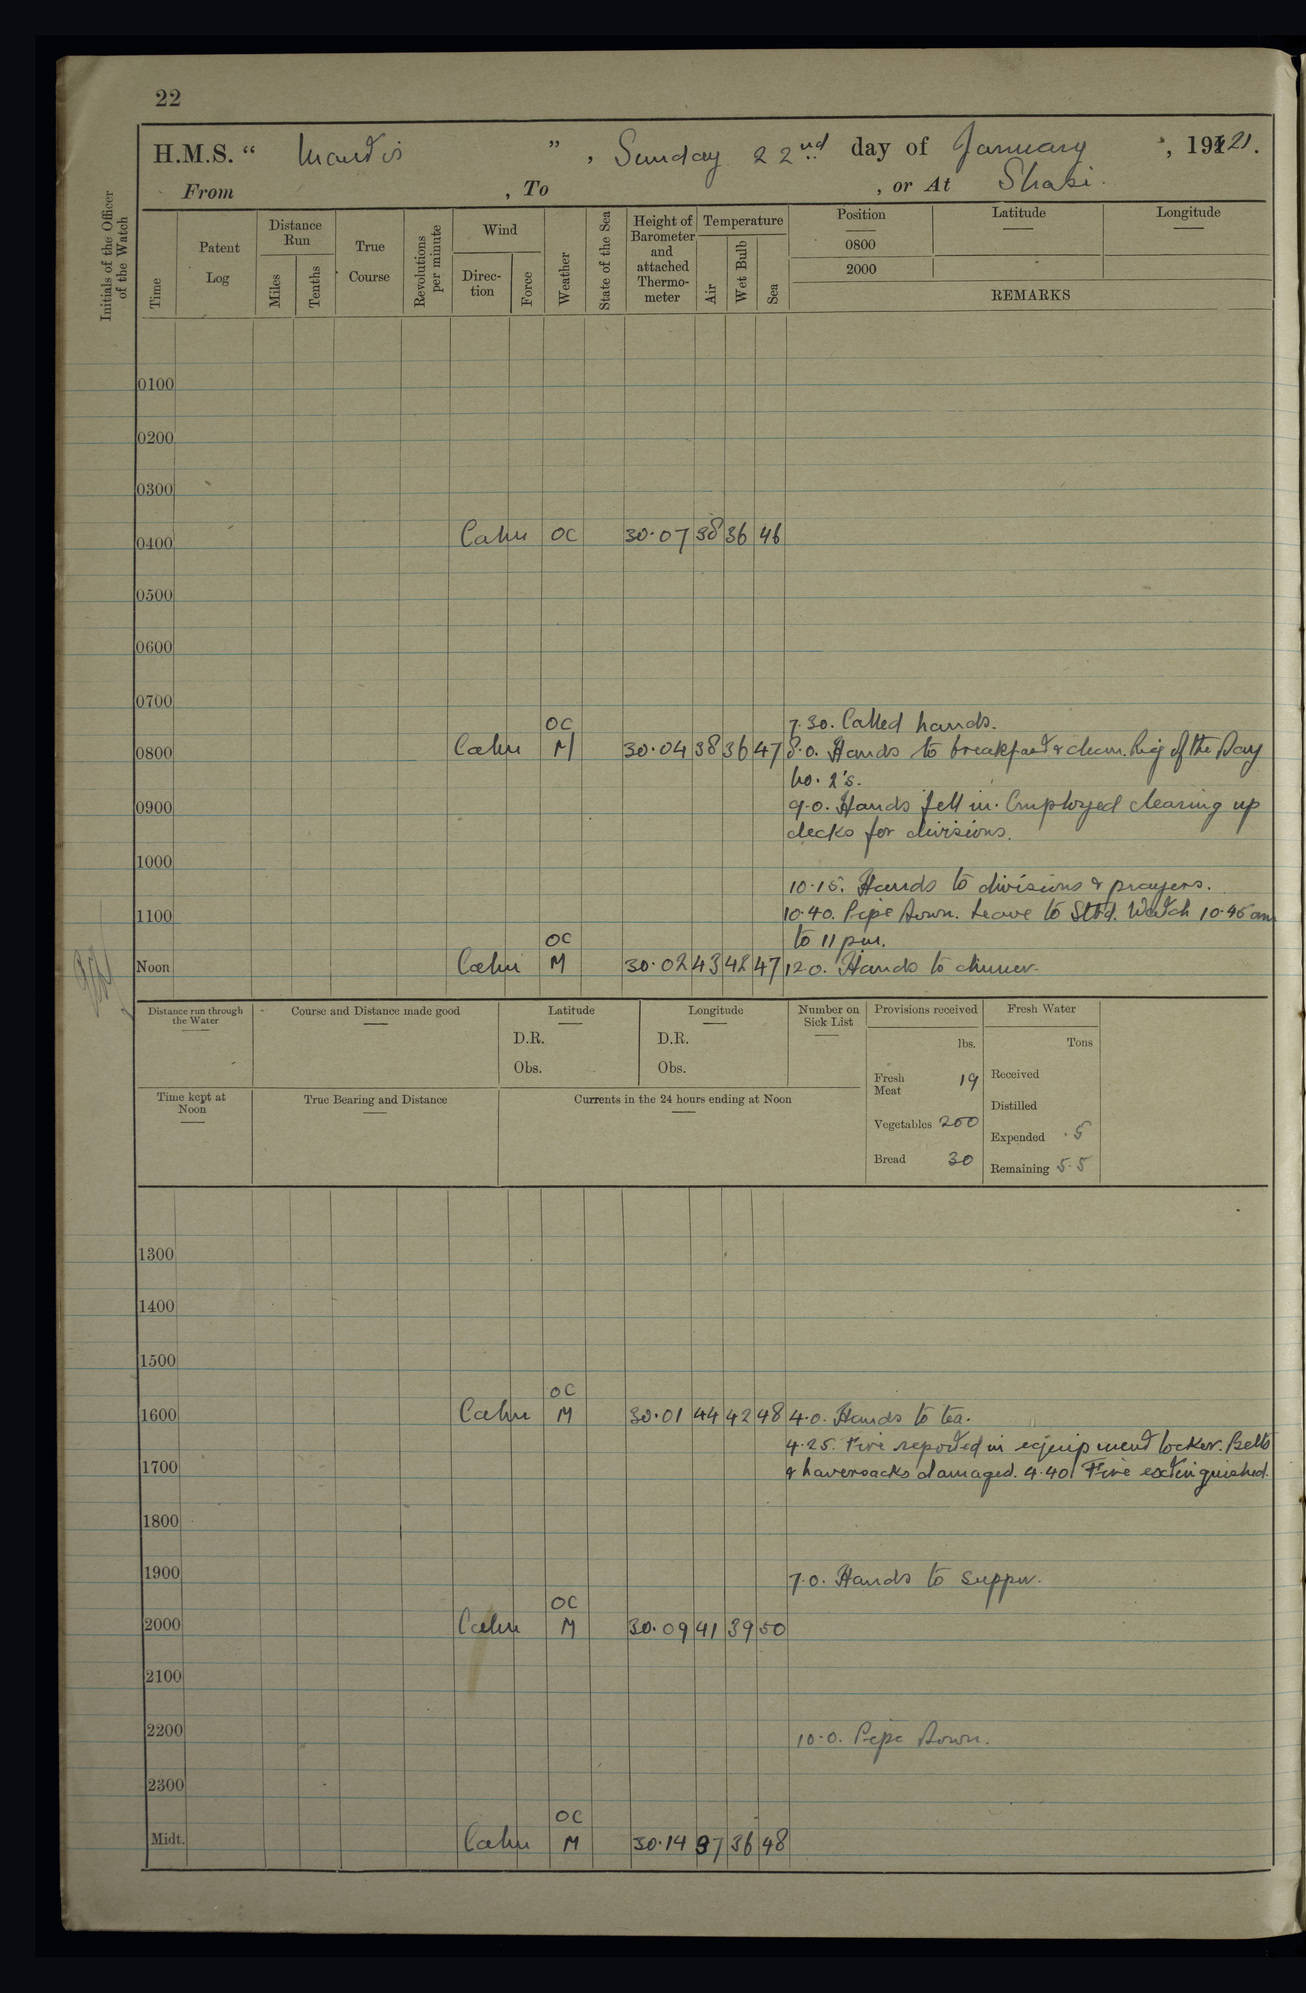 22
H.M.S. “ Mantis ” , Sunday 22nd day of January , 1921.
From , To , or At Shasi.
Initials of the Officer of the Watch
Time
Patent Log
Distance Run
Miles
Tenths
True Course
Revolutions per minute
Wind
Direction
Force
Weather
State of the Sea
Height of Barometer and attached Thermometer
Temperature
Air
Wet Bulb
Sea
Position
Latitude
Longitude
0800
2000
REMARKS
0100
0200
0300
0400 Calm OC 30.07 38 36 46
0500
0600
0700
OC 7.30. Called hands.
0800 Calm M 30.04 38 36 47 8.0. Hands to breakfast & clean. Rig of the Day
No. 2's.
0900 9.0. Hands fell in. Employed clearing up
decks for divisions.
1000
10.15. Hands to divisions & prayers.
1100 10.40. Pipe Down. Leave to Stbd. Watch 10.45 am
OC to 11 pm.
Noon Calm M 30.02 43 42 47 12.0. Hands to dinner.
Distance run through the Water
Course and Distance made good
Latitude
D.R.
Obs.
Longitude
D.R.
Obs.
Number on Sick List
Provisions received
lbs.
Fresh Meat 19
Vegetables 200
Bread 30
Fresh Water
Tons
Received
Distilled
Expended .5
Remaining 5.5
Time kept at Noon
True Bearing and Distance
Currents in the 24 hours ending at Noon
1300
1400
1500
OC
1600 Calm M 30.01 44 42 48 4.0. Hands to tea.
4.25. Fire reported in equipment locker. Belts
1700 & haversacks damaged. 4.40 Fire extinguished.
1800
1900 7.0. Hands to supper.
OC
2000 Calm M 30.09 41 39 50
2100
2200 10.0. Pipe Down.
2300
OC
Midt. Calm M 30.14 37 36 48